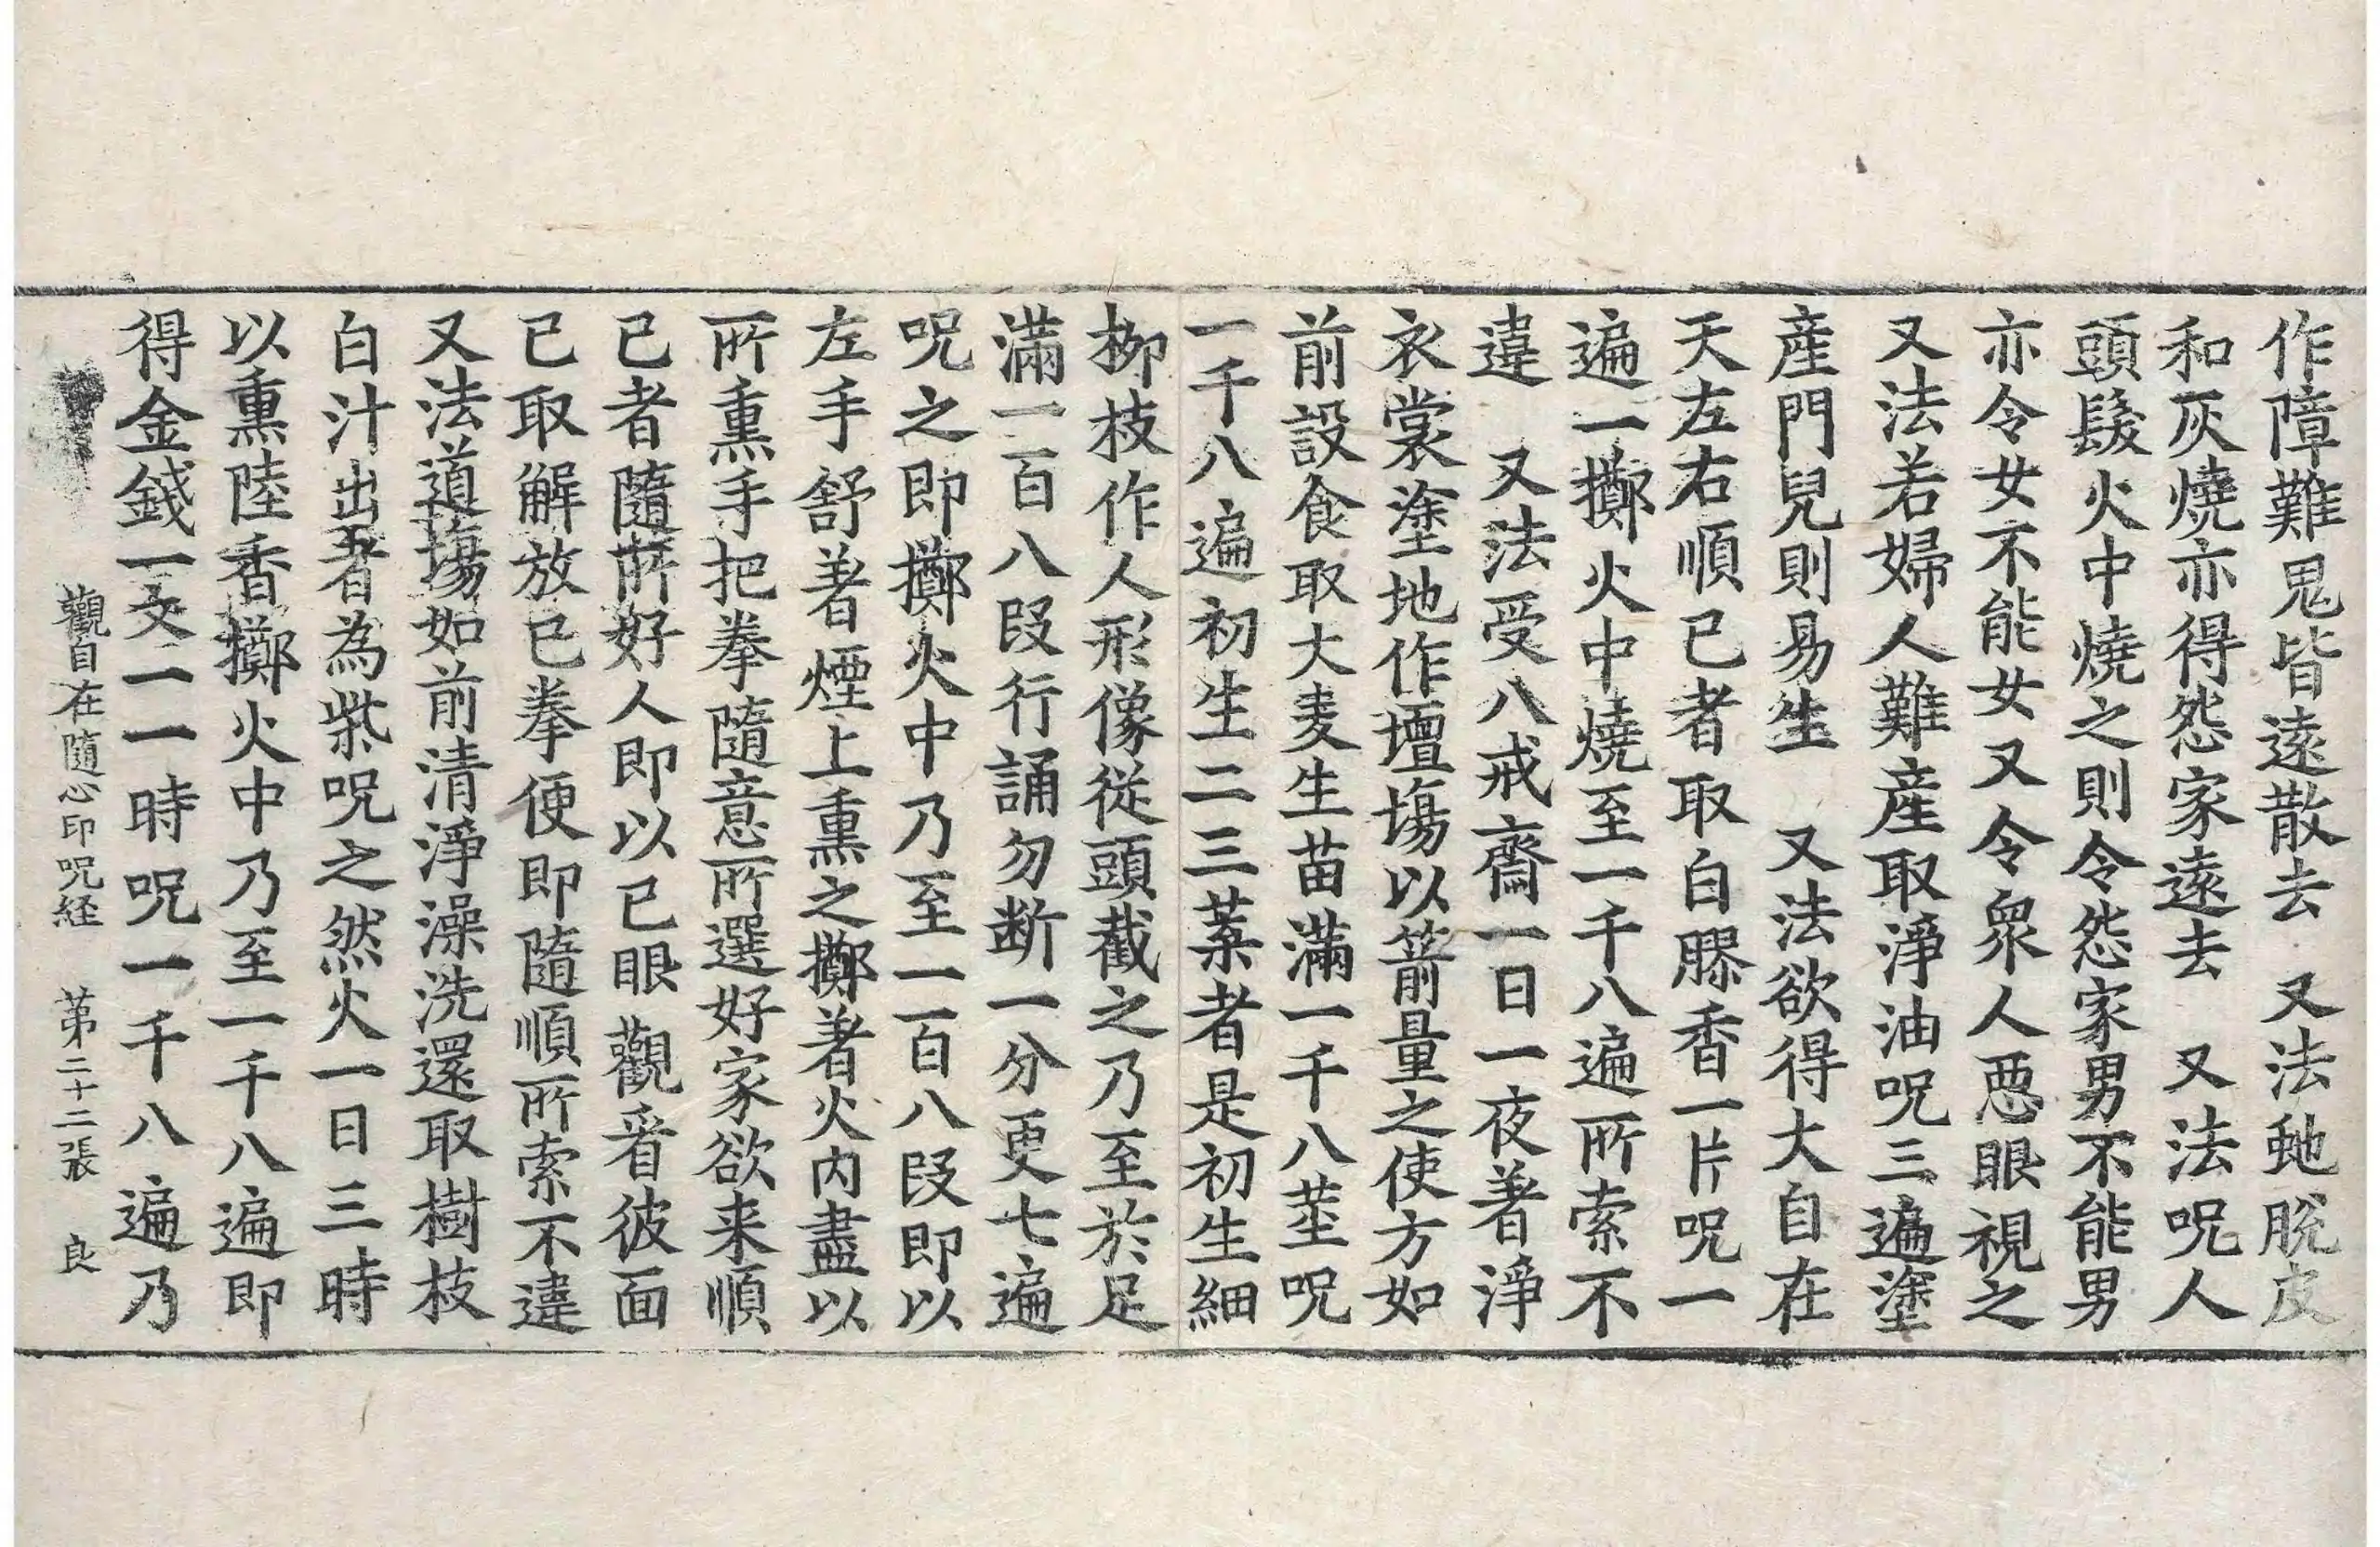 作障難鬼皆遠散去 又法虵脫皮
和灰燒亦得怨家遠去 又法呪人
頭髮火中燒之則令怨家男不能男
亦令女不能女又令衆人惡眼視之
又法若婦人難產取淨油呪三遍塗
產門兒則易生 又法欲得大自在
天左右順已者取白膠香一片呪一
遍一擲火中燒至一千八遍所索不
違 又法受八戒齋一日一夜著淨
衣裳塗地作壇場以箭量之使方如
前設食取大麦生苗滿一千八莖呪
一千八遍初生二三葉者是初生細
柳枝作人形像從頭截之乃至於足
滿一百八段行誦勿断一分更七遍
呪之即擲火中乃至一百八段即以
左手舒著煙上熏之擲著火內盡以
所熏手把拳隨意所選好家欲来順
已者隨所好人即以已眼觀看彼面
已取解放已拳便即隨順所索不違
又法道場如前清淨澡洗還取樹枝
白汁出者為柴呪之然火一日三時
以熏陸香擲火中乃至一千八遍即
得金錢一文一一時呪一千八遍乃
觀自在隨心印呪経 苐二十二張 良